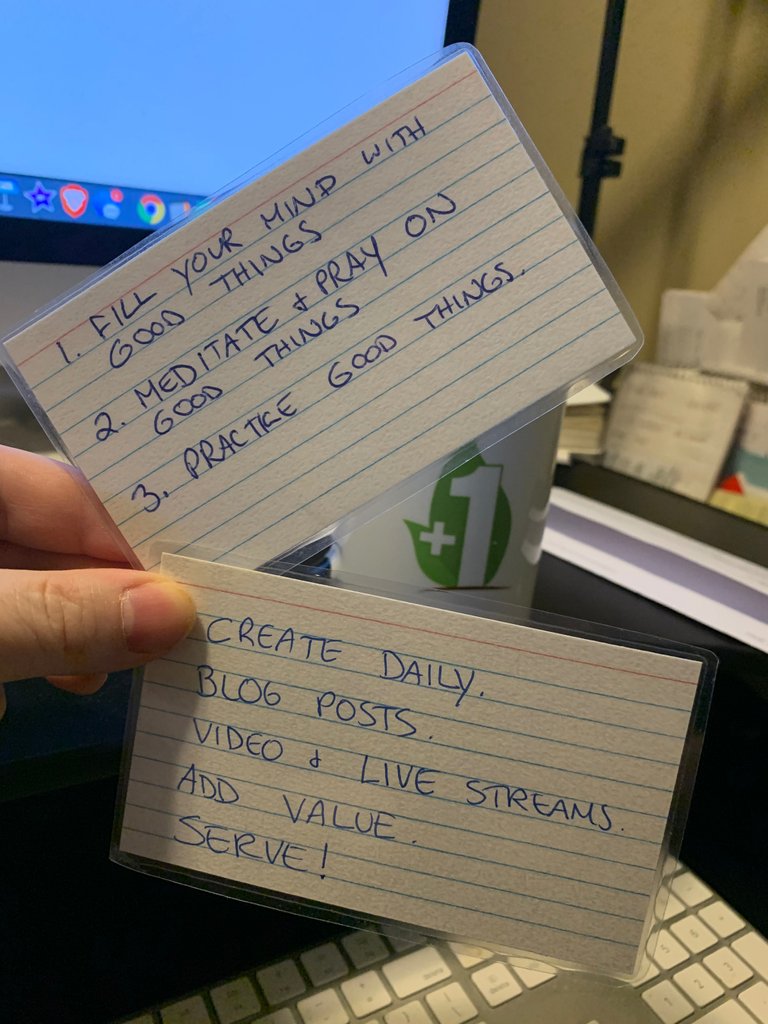 1. FILL YOUR MIND WITH
GOOD THINGS
2. MEDITATE & PRAY ON
GOOD THINGS
3. PRACTICE GOOD THINGS.
+1
CREATE DAILY.
BLOG POSTS.
VIDEO & LIVE STREAMS.
ADD VALUE.
SERVE!